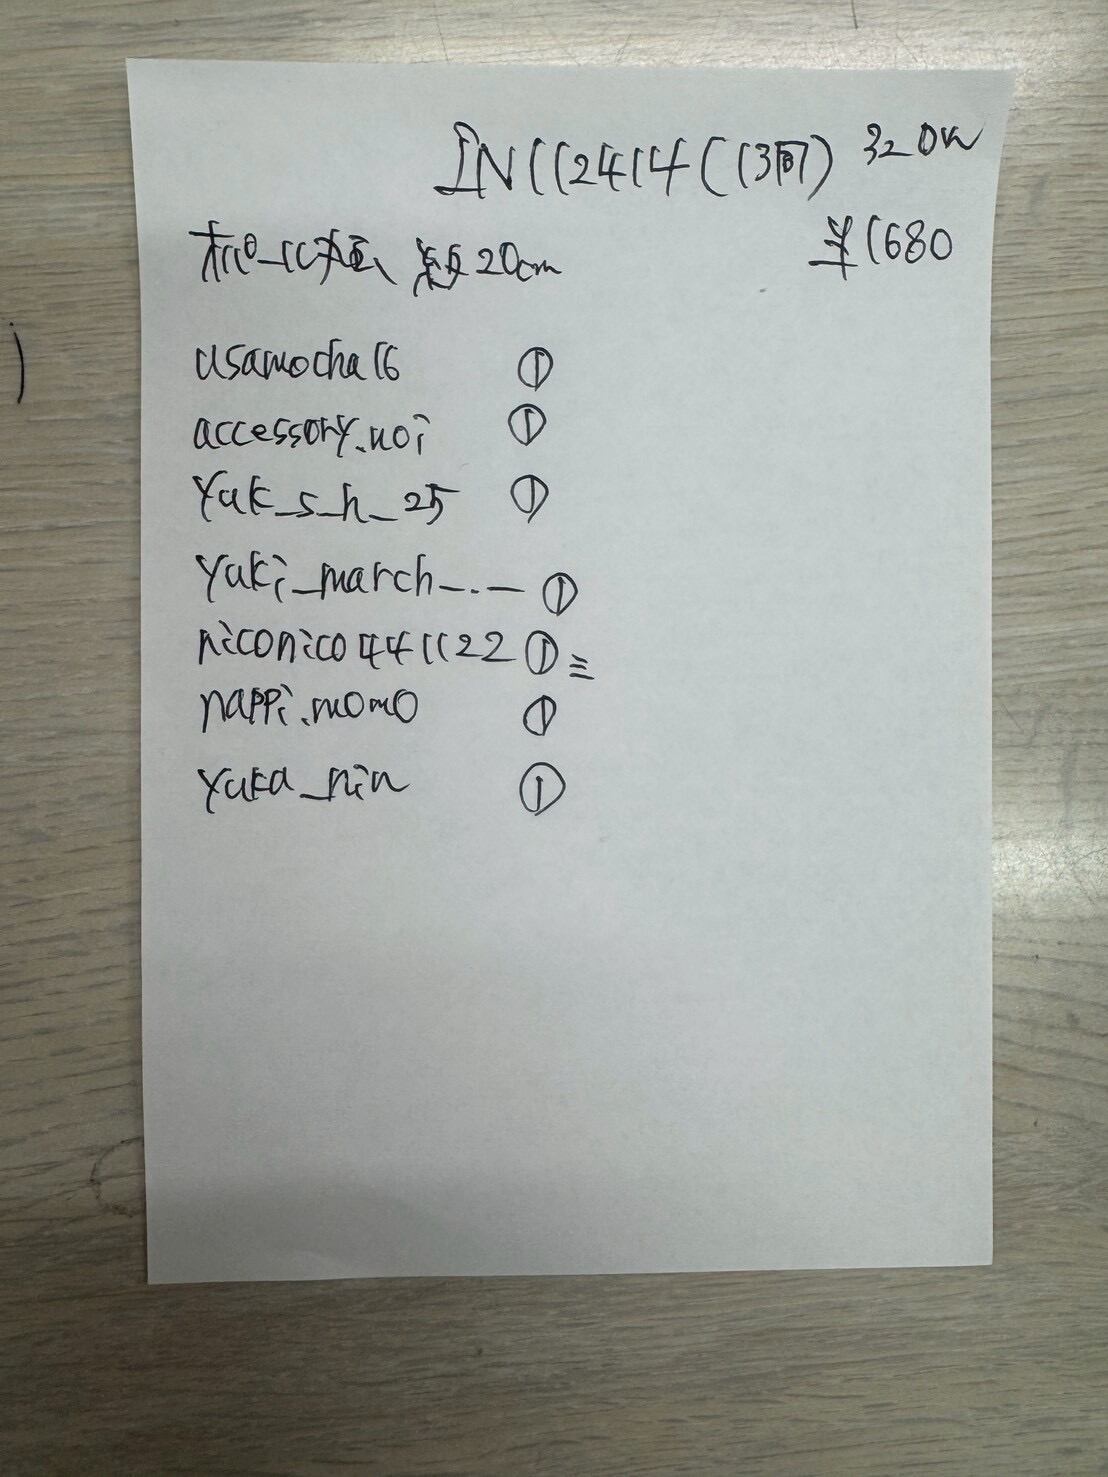 IN1124141 (13同) 320w
¥1680
20cm
usamocha16 ①
accessory.noi ①
yuk_s_h_25 ①
yuki_march_._ ①
niconico441122 ①
nappi.momo ①
yuka_nin ①